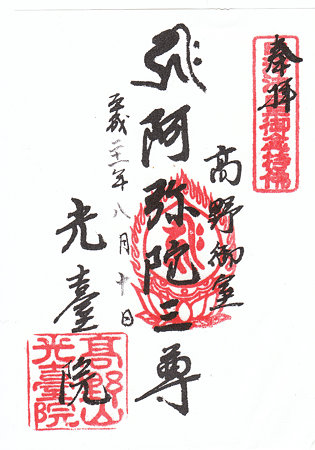 奉拝
高野御室
阿弥陀三尊
平成二十一年八月十日
光臺院
高野山
光臺院